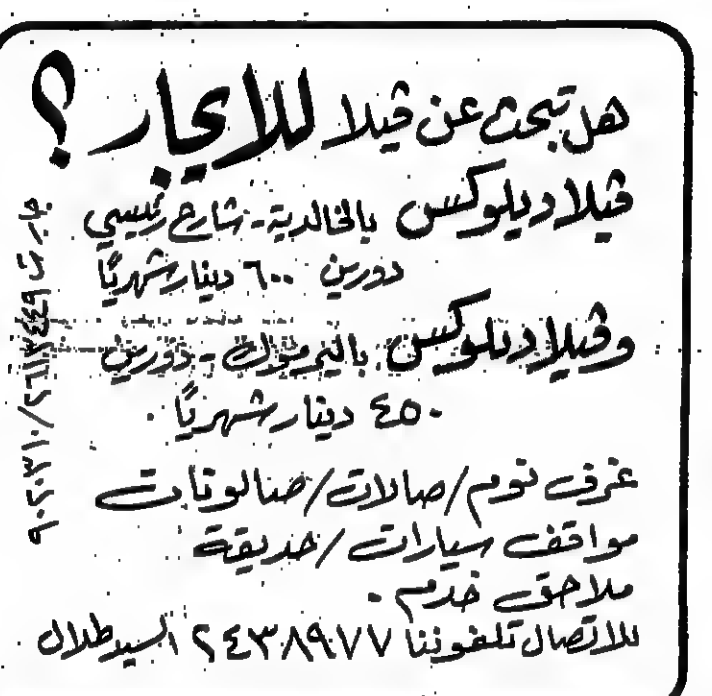 هل تبحث عن ڤيلا للايجار ؟
ڤيلا ديلوكس بالخالدية - شارع رئيسي
دورين ٦٠٠ دينار شهريًا
وڤيلا ديلوكس باليرموك - دورين
٤٥٠ دينار شهريًا .
غرف نوم / صالات / صالونات
مواقف سيارات / حديقة
ملاحق خدم .
للاتصال تلفونيا ٢٤٣٨٩٧٧ السيد طلال